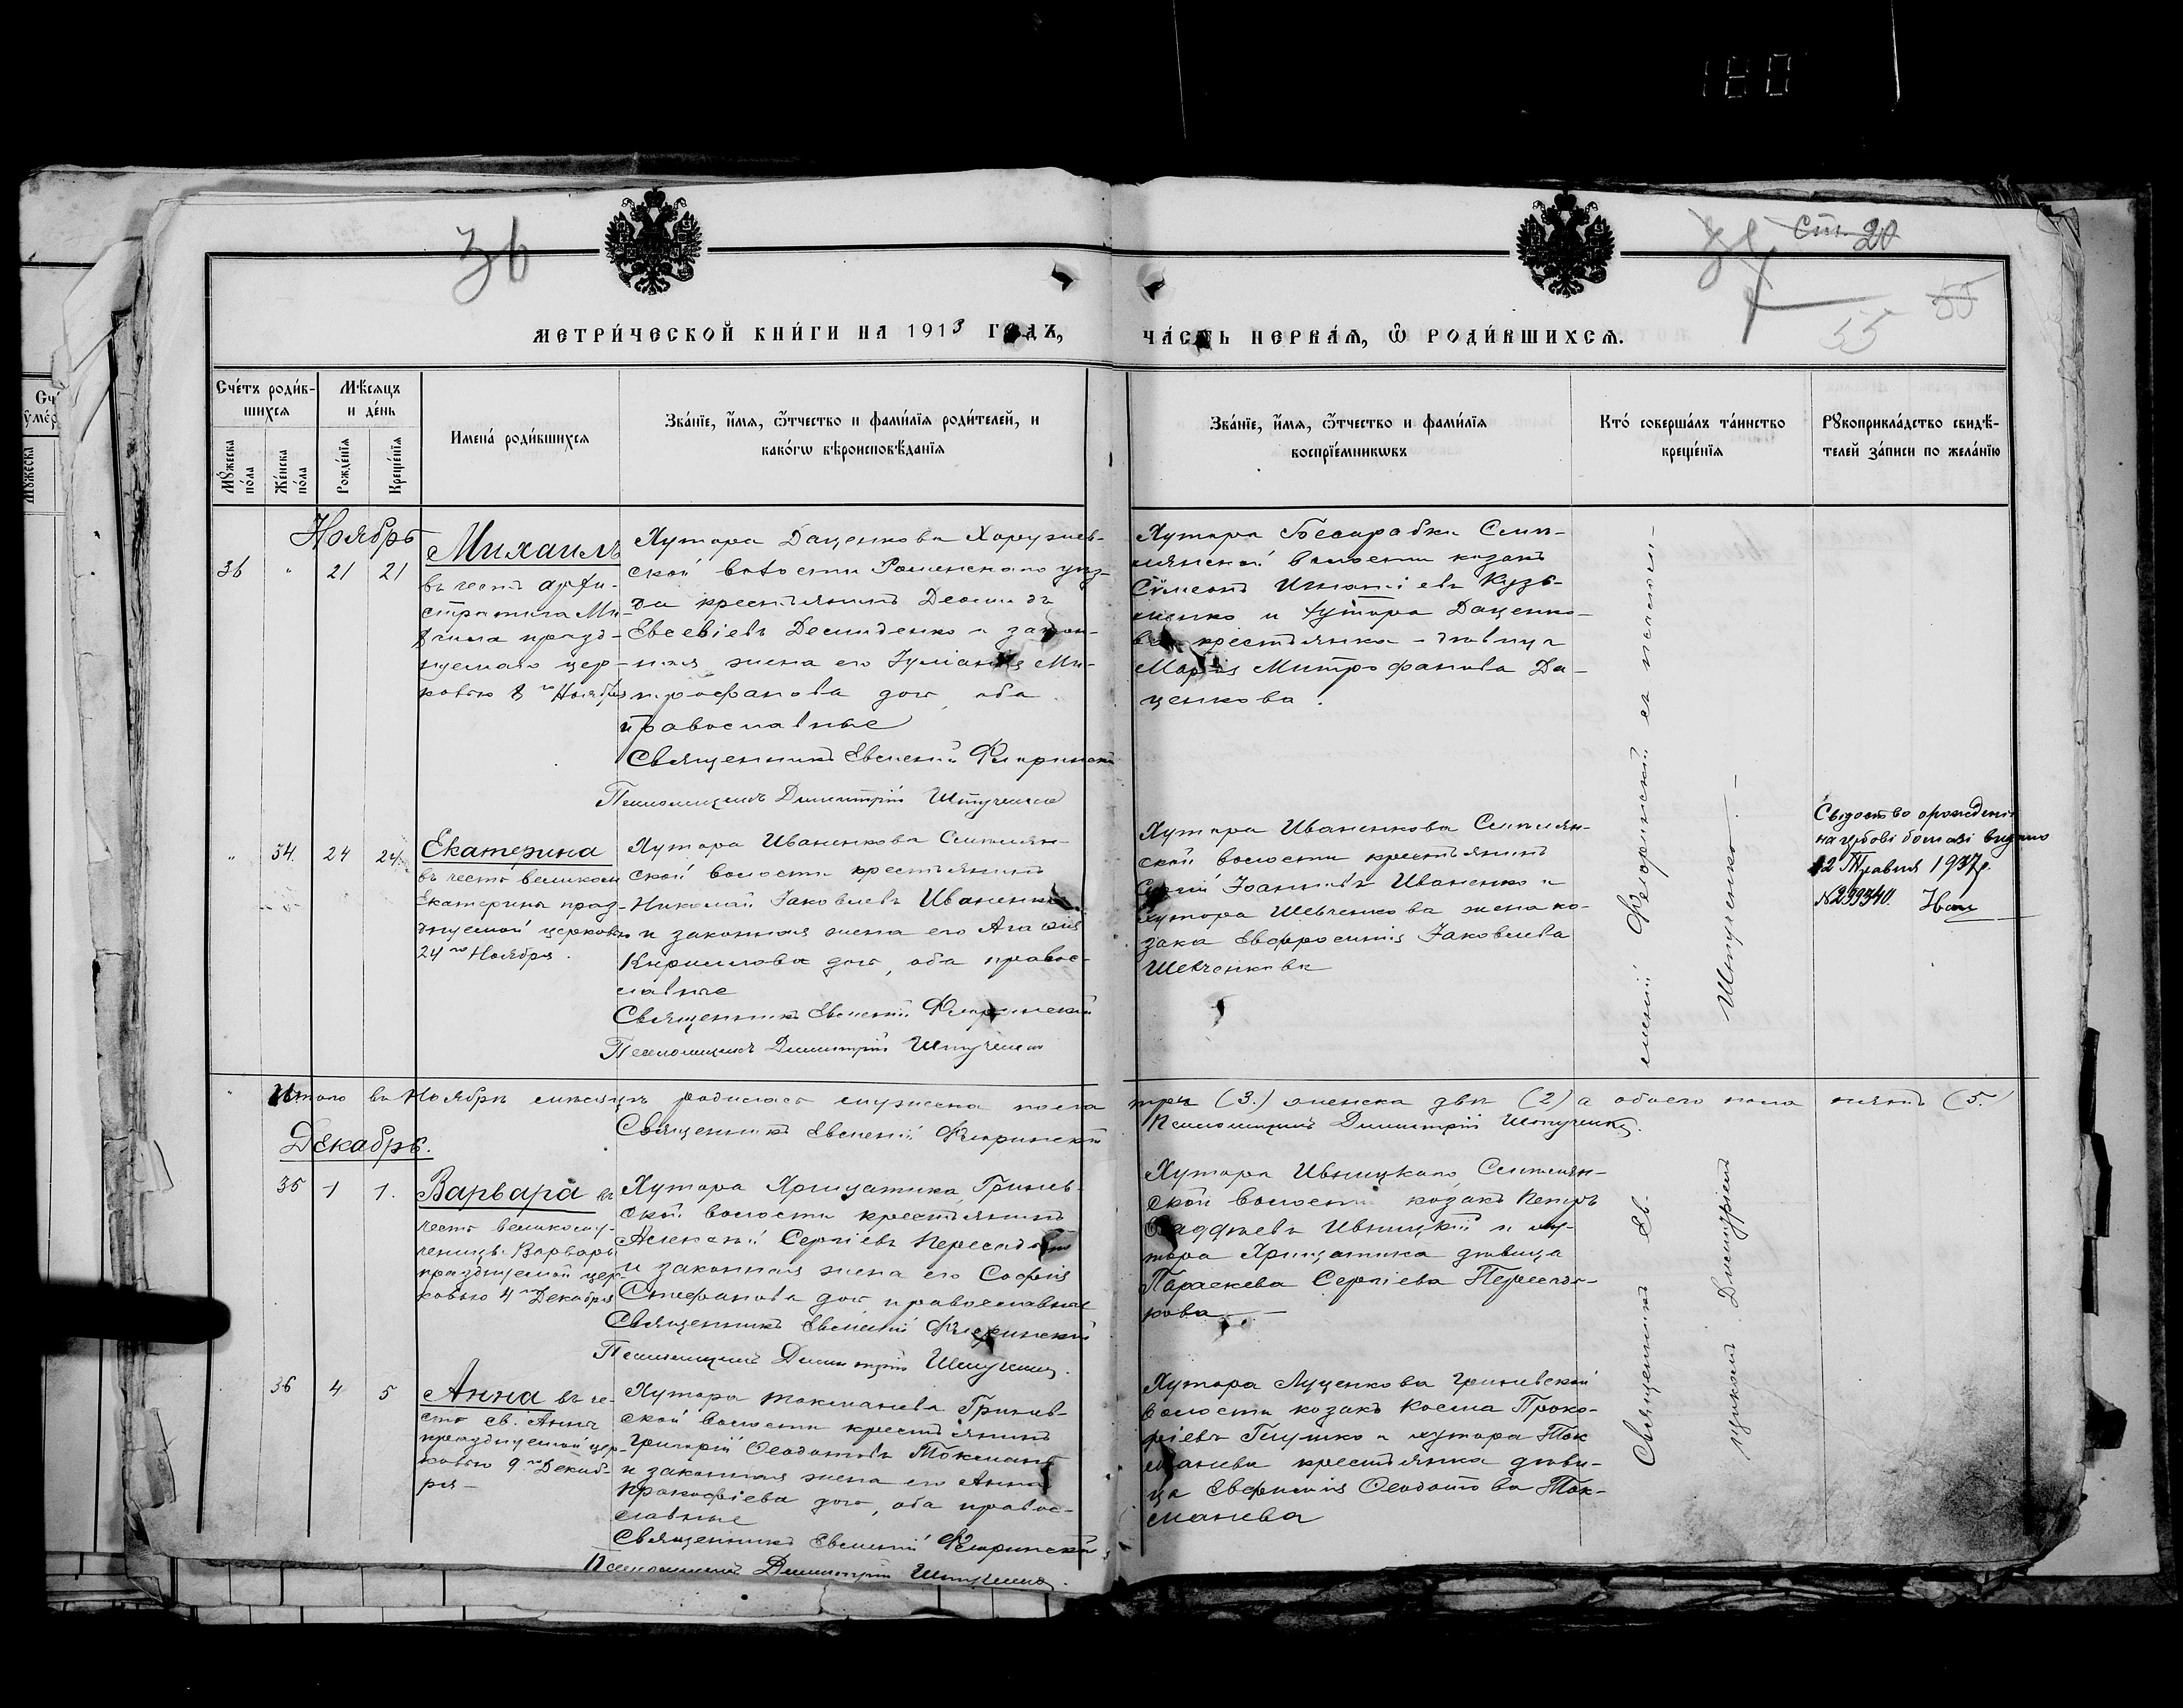 180
36
Ст. 20
55
55
МЕТРИ́ЧЕСКОЙ КНИ́ГИ НА 1913 ГОДЪ,
ЧА́СТЬ ПЕРВАѦ, Ѿ РОДИ́ВШИХСѦ.
Сче́тъ роди́в-
шихсѧ
Мѣ́сѧцъ
и де́нь
Мꙋ́жеска по́ла
Же́нска по́ла
Рожде́нїѧ
Креще́нїѧ
Имена́ роди́вшихсѧ
Зва́нїе, и҆́мѧ, ѻ҆́тчество и фами́лїѧ роди́телей, и
како́гѡ вѣроисповѣ́данїѧ
Зва́нїе, и҆́мѧ, ѻ҆́тчество и фами́лїѧ
воспрїе́мникѡвъ
Кто́ соверша́лъ та́инство
креще́нїѧ
Рꙋкоприкла́дство свидѣ́-
телей за́писи по жела́нїю
Ноябрь
36 " 21 21
Михаилъ
въ честь архи-
стратига Ми-
хаила празд-
нуемаго цер-
ковью 8го Ноября
Хутора Даценкова Хоружев-
ской волости Роменскаго уѣз-
да крестьянинъ Деомидъ
Евсевіевъ Демиденко и закон-
ная жена его Іуліанія Ми-
трофанова доч, оба
православные
Священникъ Евгеній Флоринскій
Псаломщикъ Димитрій Штученко
Хутора Бесарабки Смѣл-
янской волости козакъ
Сѵмеонъ Игнатіевъ Кузь-
менко и хутора Даценко-
ва крестьянка-дѣвица
Марія Митрофанова Да-
ценкова.
" 34. 24 24.
Екатерина
въ честь великом
Екатерины празд-
днуемой церковью
24го Ноября.
Хутора Иваненкова Смѣлян-
ской волости крестьянинъ
Николай Іаковлевъ Иваненко
и законная жена его Агаѳія
Кириллова доч, оба правос-
лавные
Священникъ Евгеній Флоринскій
Псаломщикъ Димитрій Штученко
Хутора Иваненкова Смѣлян-
ской волости крестьянинъ
Сергій Іоанновъ Иваненко и
хутора Шевченкова жена ко-
зака Евфросинія Іаковлева
Шевченкова
Свідоство о рождені
на гербові бомазі видано
12 Травня 1937р.
№239340.
Итого въ Ноябрѣ мѣсяцѣ родилось мужеска пола три (3.) женска двѣ (2) а обоего пола пять (5.
Священникъ Евгеній Флоринскій
Псаломщикъ Димитрій Штученко.
Декабрь.
35 1 1.
Варвара въ
честь великому-
ченицы Варвары
празднуемой цер-
ковью 4го Декабря
Хутора Хрищатика, Гринев-
ской волости крестьянинъ
Алексій Сергіевъ
и законная жена его Софія
Стефанова доч, православные
Священникъ Евгеній Флоринскій
Псаломщикъ Димитрій Штученко.
Хутора Ивницкаго, Смѣлян-
ской волости козакъ Петръ
Ѳаддѣевъ Ивницкій и ху-
тора Хрищатика дѣвица
Параскева Сергіева
кова
36 4 5
Анна въ че-
сть св. Анны
празднуемой цер-
ковью 9го Декаб-
ря-
Хутора Токманева Гринев-
ской волости крестьянинъ
Григорій Ѳеодотовъ Токмань
и законная жена его Анна
Прокофіева доч, оба правос-
лавные
Священникъ Евгеній Флоринскій
Псаломщикъ Димитрій Штученко.
Хутора Луценкова Гриневской
волости козакъ Косма Проко-
фіевъ Глушко и хутора Ток
манева крестьянка дѣви-
ца Евфимія Ѳеодотова Ток-
манева
Священникъ Ев-
геній Флоринскій съ псаломщ-
щикомъ Димитріемъ
Штученко.-